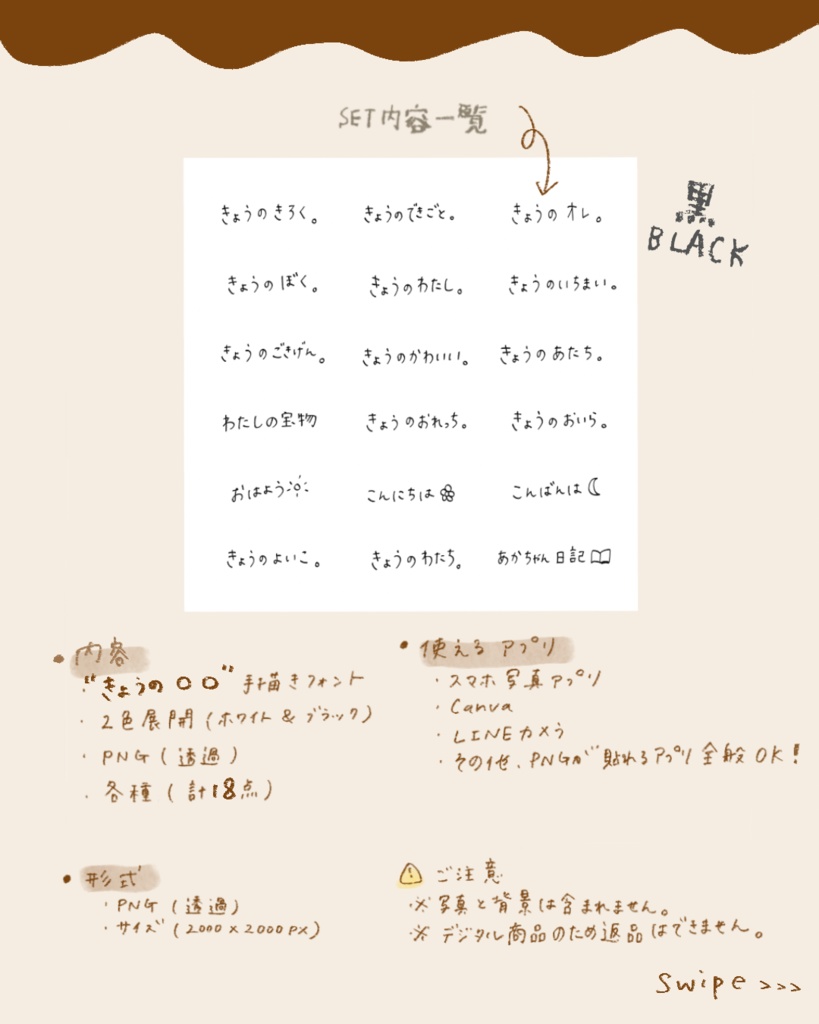 SET内容一覧
黒
BLACK
きょうのきろく。 きょうのできごと。 きょうのオレ。
きょうのぼく。 きょうのわたし。 きょうのいちまい。
きょうのごきげん。 きょうのかわいい。 きょうのあたち。
わたしの宝物 きょうのおれっち。 きょうのおいら。
おはよう こんにちは こんばんは
きょうのよいこ。 きょうのわたち。 あかちゃん日記
• 内容
・"きょうの〇〇" 手描きフォント
・2色展開(ホワイト&ブラック)
・PNG(透過)
・各種(計18点)
• 使えるアプリ
・スマホ写真アプリ
・Canva
・LINEカメラ
・その他、PNGが貼れるアプリ全般OK!
• 形式
・PNG(透過)
・サイズ(2000×2000PX)
⚠ ご注意
・※写真と背景は含まれません。
・※デジタル商品のため返品はできません。
Swipe >>>